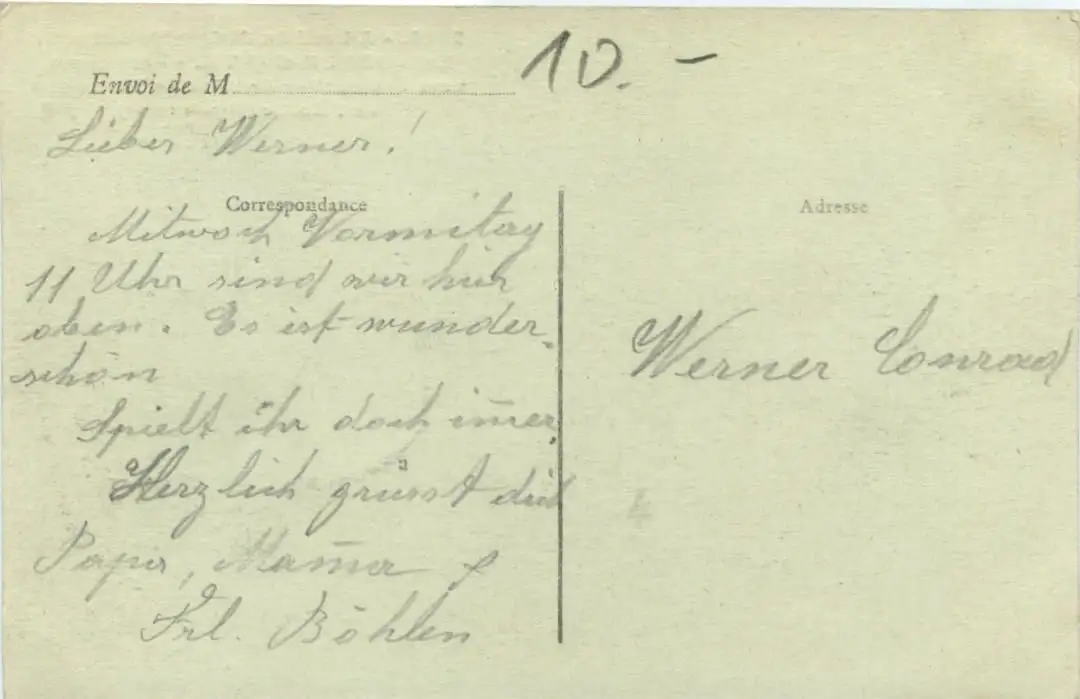 10. -
Envoi de M
Lieber Werner!
Correspondance
Adresse
Mitwoch Vormitag
11 Uhr sind wir hier
oben. Es ist wunder-
schön
Spielt ihr doch im̄er.
Herzlich grüsst dich
Papa, Mam̄a &
Frl. Böhlen
Werner Conrad